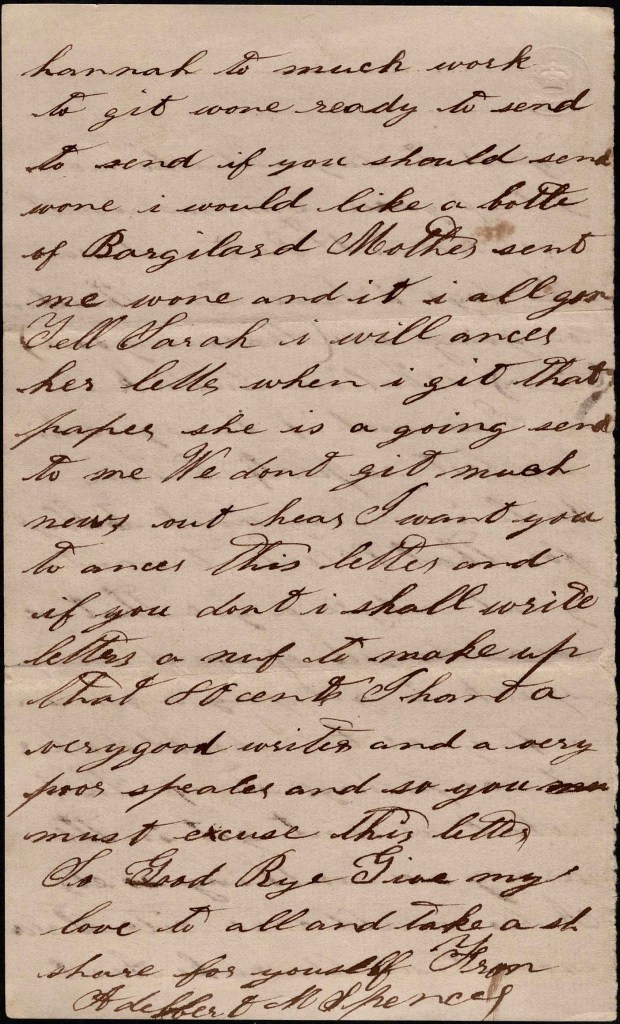 hannah to much work
to git wone ready to send
to send if you should send
wone i would like a botte
of Bargilard Mother sent
me wone and it i all gon
Tell Sarah i will ancer
her letter when i git that
paper she is a going send
to me We dont git much
news out hear I want you
to ancer this letter and
if you dont i shall write
letters a nuf to make up
that 80 cents I hant a
verygood writer and a very
poor speaker and so you
must excuse this letter
So Good Bye Give my
love to all and take a sh
share for youself From
Adelbert M Spencer